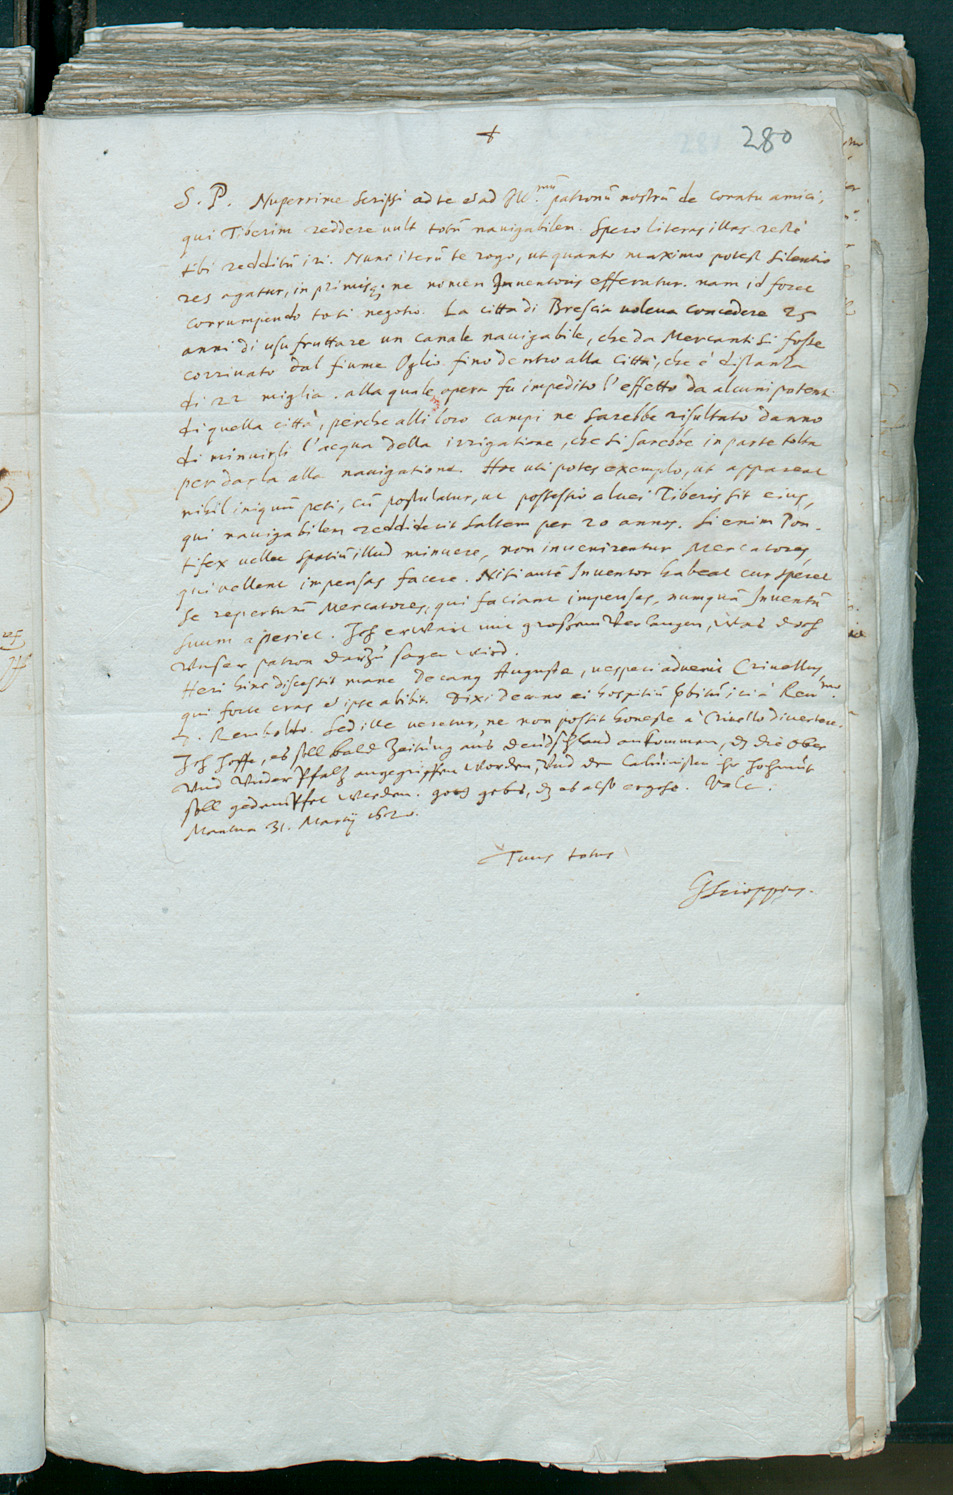 +
280
S. P. Nuperrime scripsi ad te et ad Ill.mũ patronũ nostrũ de conatu amici,
qui Tiberim reddere vult totũ navigabilem. Spero literas illas recte
tibi redditũ iri. Nunc iterũ te rogo, ut quanto maximo potest silentio
res agatur, in primisq; ne nomen Inventoris efferatur. nam id foret
corrumpendo toti negotio. La città di Brescia voleva concedere 25
anni di usufruttare un canale navigabile, che da Mercanti si fosse
corrivato dal fiume Oglio fino dentro alla Città, che è distanza
di 22 miglia. alla quale opera fu impedito l'effetto da alcuni potenti
di quella città, perche alli loro campi ne sarebbe risultato danno
di minuirli l'acqua della irrigatione, che si sarebbe in parte tolta
per darla alla navigatione. Hoc uti potes exemplo, ut appareat
nihil iniquũ peti, cũ postulatur, ut possessio alvei Tiberis sit eius,
qui navigabilem reddiderit saltem per 20 annos. Si enim Pon-
tifex vellet spatiũ illud minuere, non invenirentur Mercatores,
qui vellent impensas facere. Nisi autẽ Inventor habeat cur speret
se reperturũ Mercatores, qui faciant impensas, numquã Inventũ
suum aperiet. Ich erwart mit grossem Verlangen, was doch
Unser patron darzů sagen wird.
Heri hinc discessit mane Decanus Augustæ, vesperi advenit Crivellus,
qui forte cras et ipse abibit. Dixi Decano ei hospitiũ prębitũ iri à Reu.mo
D. Renboldo. Sed ille veretur, ne non possit honeste à Crivello divertere.
Ich hoffe, es soll bald Zeitůng aůs deůdschland ankommen, dz die Ober
Und Under Pfalz angegriffen worden, Und der Calvinisten ihr hochmůt
soll gedempffet werden. gott gebe, dz es also ergehe. Vale.
Mantua 31. Martij 1620.
Tuus totus
GScioppius.